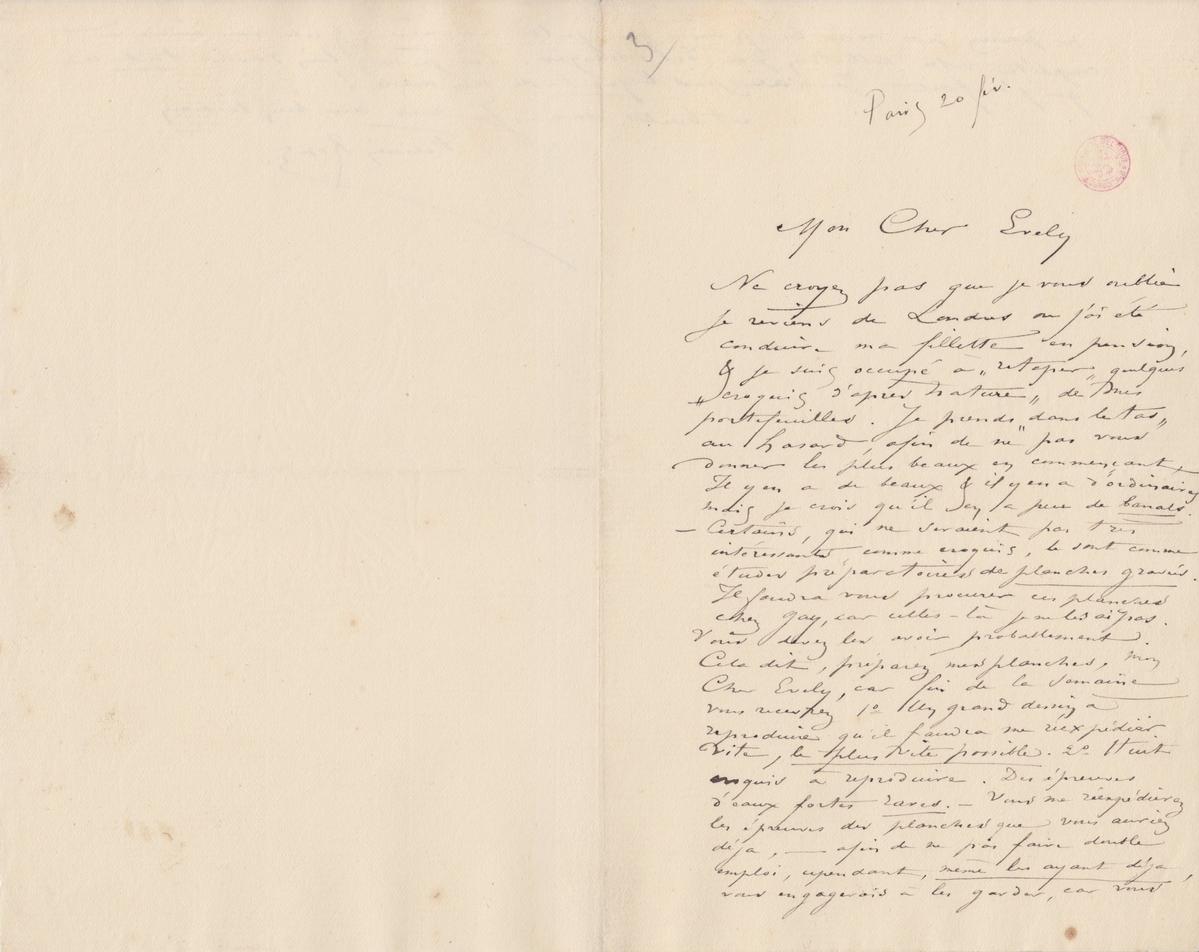 3/
Paris 20 fév.
Mon Cher Evely
Ne croyez pas que je vous oublie
je reviens de Londres ou j'ai été
conduire ma fillette en pension,
& je suis occupé à „retaper„ quelques
„croquis d'après nature„ de mes
portefeuilles. Je prends „dans le tas„
au hasard, afin de ne pas vous
donner les plus beaux en commençant,
Il y en a de beaux & il y en a d'ordinaires
mais je crois qu'il y en a peu de banals.
— Certains, qui ne seraient pas très
intéressants comme croquis, le sont comme
études préparatoires de planches gravées.
Il faudra vous procurer ces planches
chez Gay, car celles-là je ne les ai pas.
Vous devez les avoir probablement.
Cela dit, préparez mes planches, mon
Cher Evely, car fin de la semaine
vous recevrez 1º Un grand dessin à
reproduire qu'il faudra me réexpédier
vite, le plus vite possible. 2º Huit
croquis à reproduire. Des épreuves
d'eaux fortes rares. — Vous me réexpédierez
les épreuves des planches que vous auriez
déja, — afin de ne pas faire double
emploi, cependant, même les ayant déja,
vous engagerais à les garder, car vous